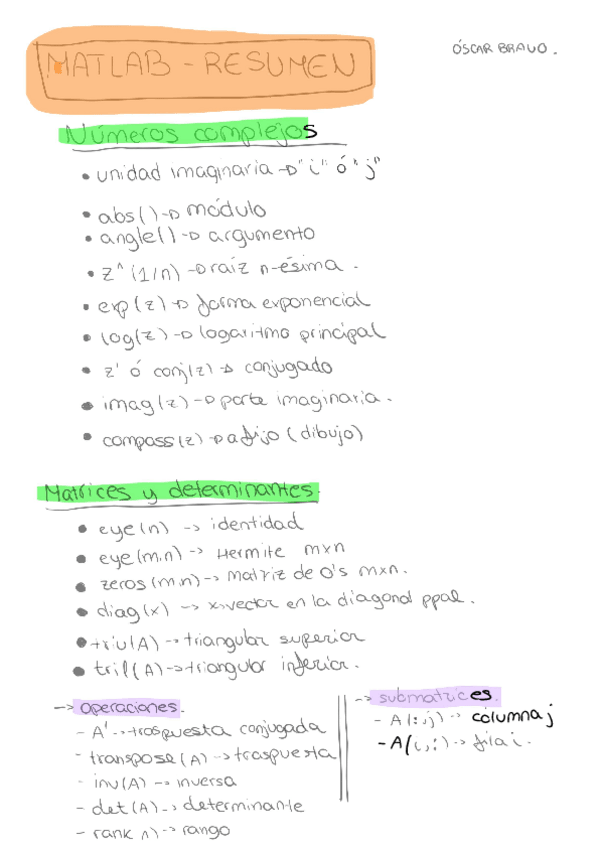 MATLAB - RESUMEN
ÓSCAR BRAVO.
Números complejos
• unidad imaginaria → "i" ó "j"
• abs() → módulo
• angle() → argumento
• z^(1/n) → raíz n-ésima.
• exp(z) → forma exponencial
• log(z) → logaritmo principal
• z' ó conj(z) → conjugado
• imag(z) → parte imaginaria.
• compass(z) → afijo (dibujo)
Matrices y determinantes.
• eye(n) → identidad
• eye(m,n) → Hermite mxn
• zeros(m,n) → matriz de 0's mxn.
• diag(x) → x→vector en la diagonal ppal.
• triu(A) → triangular superior
• tril(A) → triangular inferior.
→ operaciones.
- A' → traspuesta conjugada
- transpose(A) → traspuesta
- inv(A) → inversa
- det(A) → determinante
- rank A) → rango
→ submatrices.
- A(:,j) → columna j
- A(i,:) → fila i.